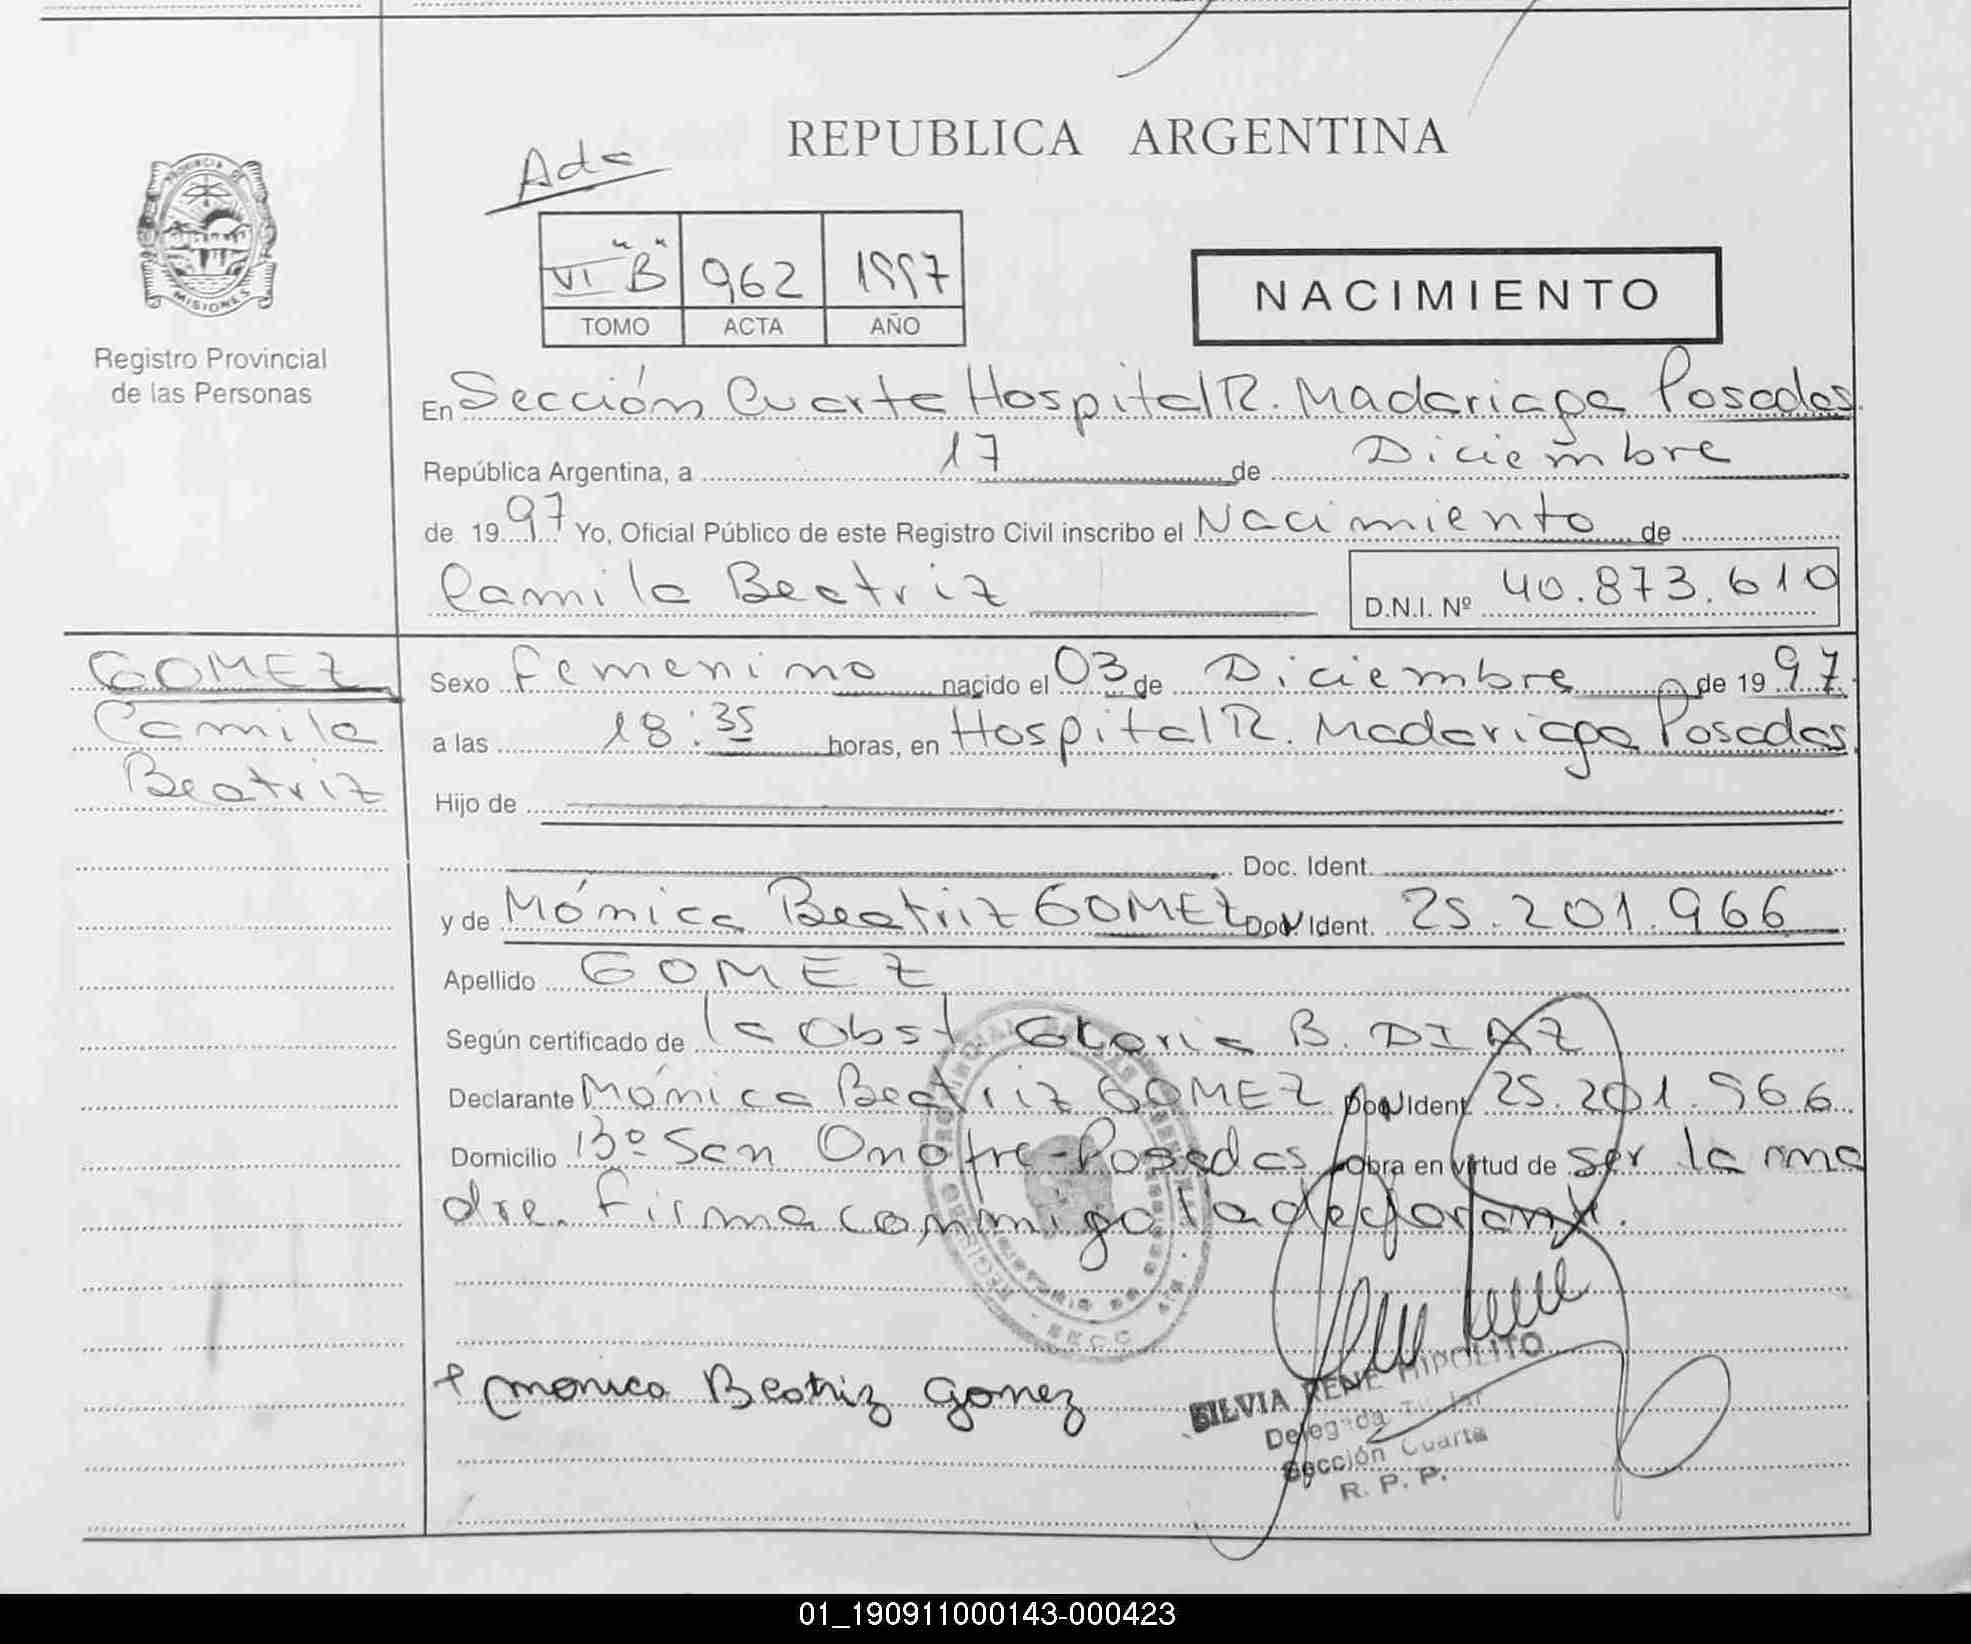 REPUBLICA ARGENTINA
Ada
VI "B" 962 1997
TOMO ACTA AÑO
NACIMIENTO
MISIONES
Registro Provincial
de las Personas
En Sección Cuarta Hospital R. Madariaga Posadas
República Argentina, a 17 de Diciembre
de 1997 Yo, Oficial Público de este Registro Civil inscribo el Nacimiento de
Camila Beatriz D.N.I. Nº 40.873.610
GOMEZ
Camila
Beatriz
Sexo Femenino nacido el 03 de Diciembre de 1997
a las 18:35 horas, en Hospital R. Madariaga Posadas
Hijo de
Doc. Ident.
y de Mónica Beatriz GOMEZ Doc. Ident. 25.201.966
Apellido GOMEZ
Según certificado de la Obst Gloria B. DIAZ
Declarante Mónica Beatriz GOMEZ Doc. Ident. 25.201.966
Domicilio Bº San Onofre - Posadas Obra en virtud de ser la ma
dre. Firma conmigo la declarante.
Monica Beatriz Gomez
SILVIA RENE HIPOLITO
Delegada Titular
Sección Cuarta
R. P. P.
01_190911000143-000423